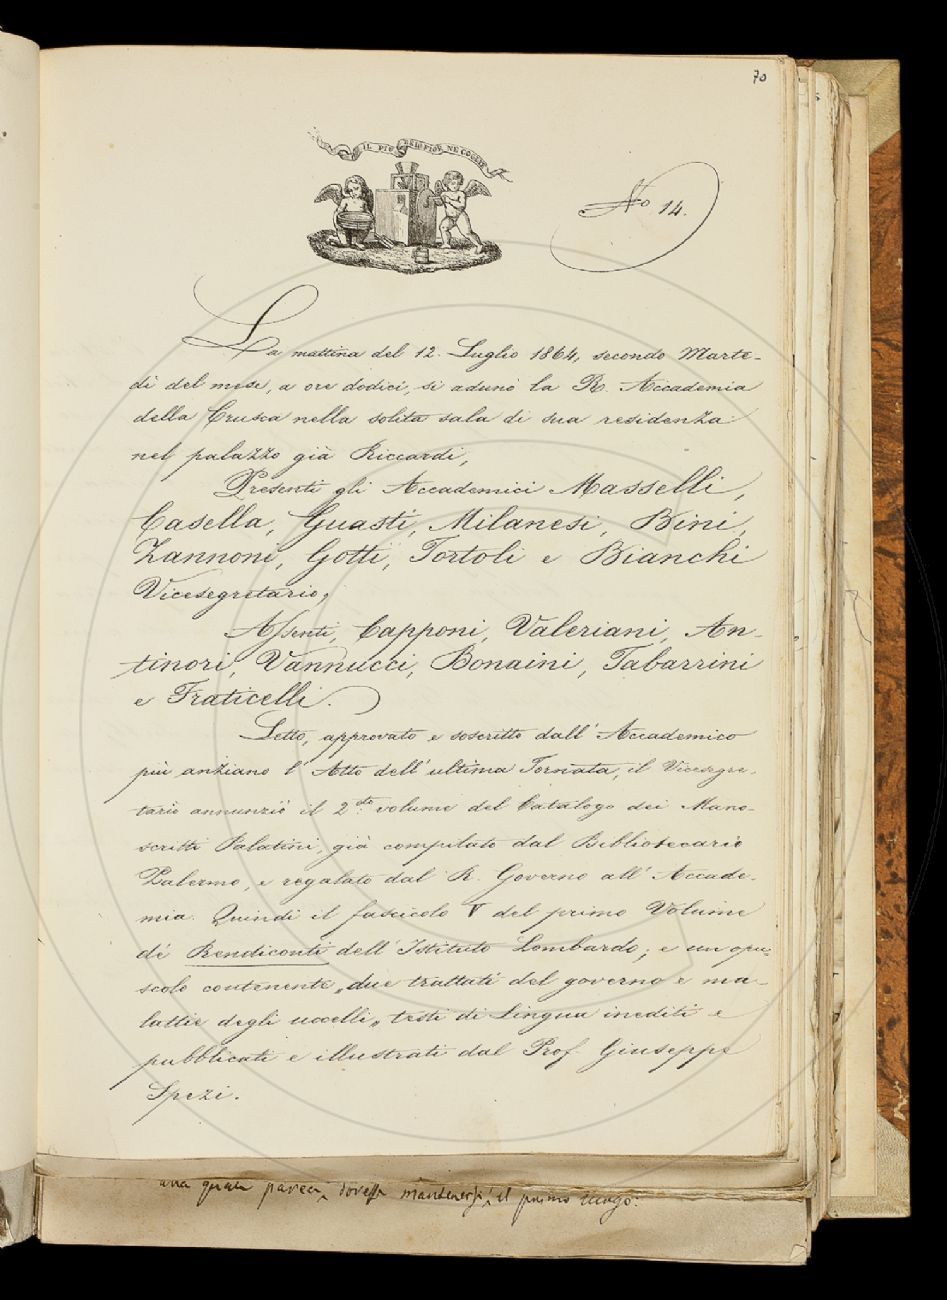 70
IL PIÙ BEL FIOR NE COGLIE
No. 14.
La mattina del 12. Luglio 1864, secondo Marte-
dì del mese, a ore dodici, si adunò la R. Accademia
della Crusca nella solita sala di sua residenza
nel palazzo già Riccardi,
Presenti gli Accademici Masselli,
Casella, Guasti, Milanesi, Bini,
Zannoni, Gotti, Tortoli e Bianchi
Vicesegretario;
Assenti, Capponi, Valeriani, An-
tinori, Vannucci, Bonaini, Tabarrini
e Fraticelli.
Letto, approvato e soscritto dall' Accademico
più anziano l' Atto dell' ultima Tornata, il Vicesegre-
tario annunziò il 2do. volume del Catalogo dei Mano-
scritti Palatini, già compilato dal Bibliotecario
Palermo, e regalato dal R. Governo all' Accade-
mia. Quindi il fascicolo V del primo Volume
de' Rendiconti dell' Istituto Lombardo; e un opu-
scolo contenente „due trattati del governo e ma-
lattie degli uccelli„ testi di Lingua inediti e
pubblicati e illustrati dal Prof. Giuseppe
Spezi.
una parea, dovesse mantenersi il primo luogo.